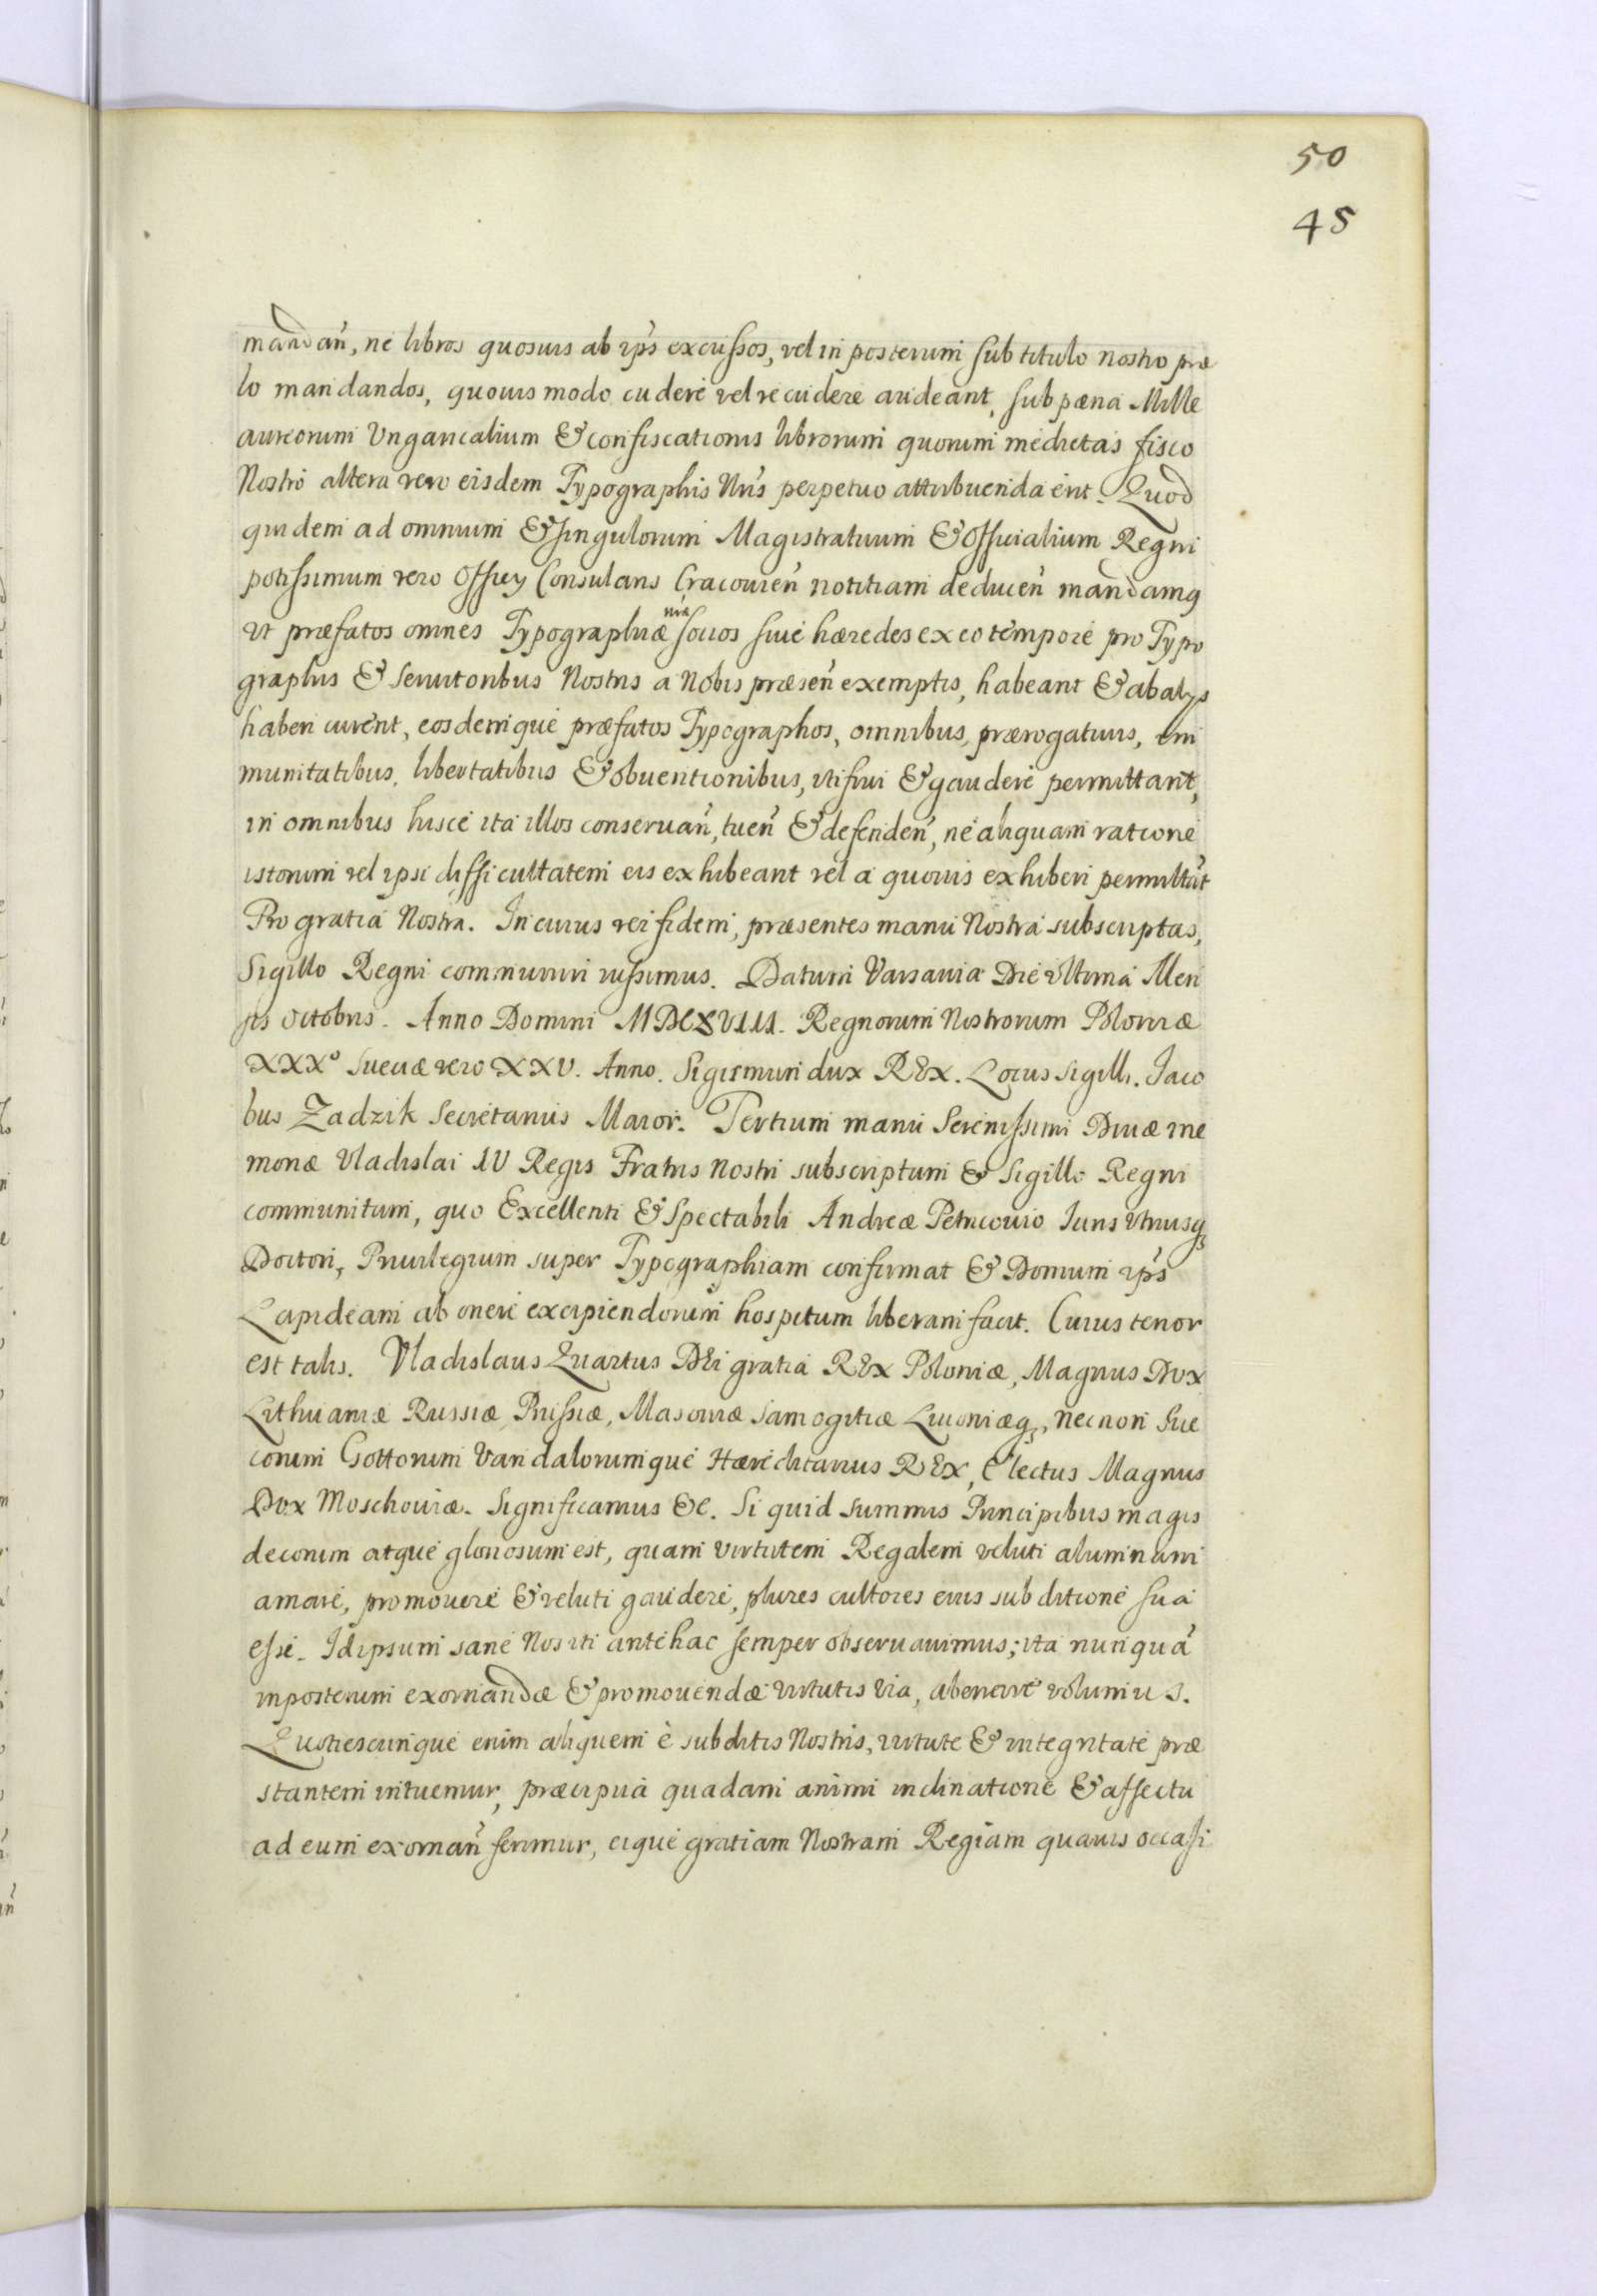 50
45
mandan̄, ne libros quosuis ab ip̄s excussos, vel in posterum sub titulo nostro præ
lo mandandos, quouis modo cudere vel recudere audeant, sub pœna Mille
aureorum Vngaricalium & confiscationis librorum quorum medietas fisco
Nostro altera vero eisdem Typographis Nr̄is perpetuo attribuenda erit. Quod
quidem ad omnium & singulorum Magistratuum & Officialium Regni
potissimum vero Officij Consularis Cracouien̄ notitiam deducen̄ mandamq
vt præfatos omnes Typographiæ nr̄æ socios siue hæredes ex eo tempore pro Typo
graphis & seruitoribus Nostris a Nobis præsen̄ exemptis, habeant & ab alijs
haberi curent, eosdemque præfatos Typographos, omnibus, prærogatiuis, im
munitatibus, libertatibus & obuentionibus, vti frui & gaudere permittant,
in omnibus hisce ita illos conseruan̄, tuen̄ & defenden̄, ne aliquam ratione
istorum vel ipsi difficultatem eis exhibeant vel a quouis exhiberi permittāt
Pro gratia Nostra. In cuius rei fidem, præsentes manu Nostra subscriptas,
Sigillo Regni communiri iussimus. Datum Varsauiæ Die vltima Men
sis Octobris. Anno Domini MDCXVIII. Regnorum Nostrorum Poloniæ
XXXº Sueciæ vero XXV. Anno. Sigismundux REX. Locus Sigilli. Jaco
bus Zadzik Secretarius Maior. Tertium manu Serenissimi Diuæ me
moriæ Vladislai IV Regis Fratris Nostri subscriptum & Sigillo Regni
communitum, quo Excellenti & Spectabili Andreæ Petricouio Iuris Vtriusq₃
Doctori, Priuilegium super Typographiam confirmat & Domum ip̄s
Lapideam ab onere excipiendorum hospitum liberam facit. Cuius tenor
est talis. Vladislaus Quartus DEi gratia REX Poloniæ, Magnus DVX
Lithuaniæ Russiæ, Prussiæ, Masouiæ Samogitiæ Liuoniæq₃, necnon Sue
corum Gottorum Vandalorumque Hæreditarius REX, Electus Magnus
Dvx Moschouiæ. Significamus &c. Si quid summis Principibus magis
decorum atque gloriosum est, quam virtutem Regalem veluti alumnam
amare, promouere & veluti gaudere, plures cultores eius sub ditione sua
esse. Id ipsum sane Nos vti antehac semper obseruauimus; ita nunquā
inposterum exornandæ & promouendæ virtutis via, aberrare volumus.
Quotiescunque enim aliquem è subditis Nostris, virtute & integritate præ
stantem intuemur, præcipua quadam animi inclinatione & affectu
ad eum exornan̄ ferimur, eique gratiam Nostram Regiam quauis occasi